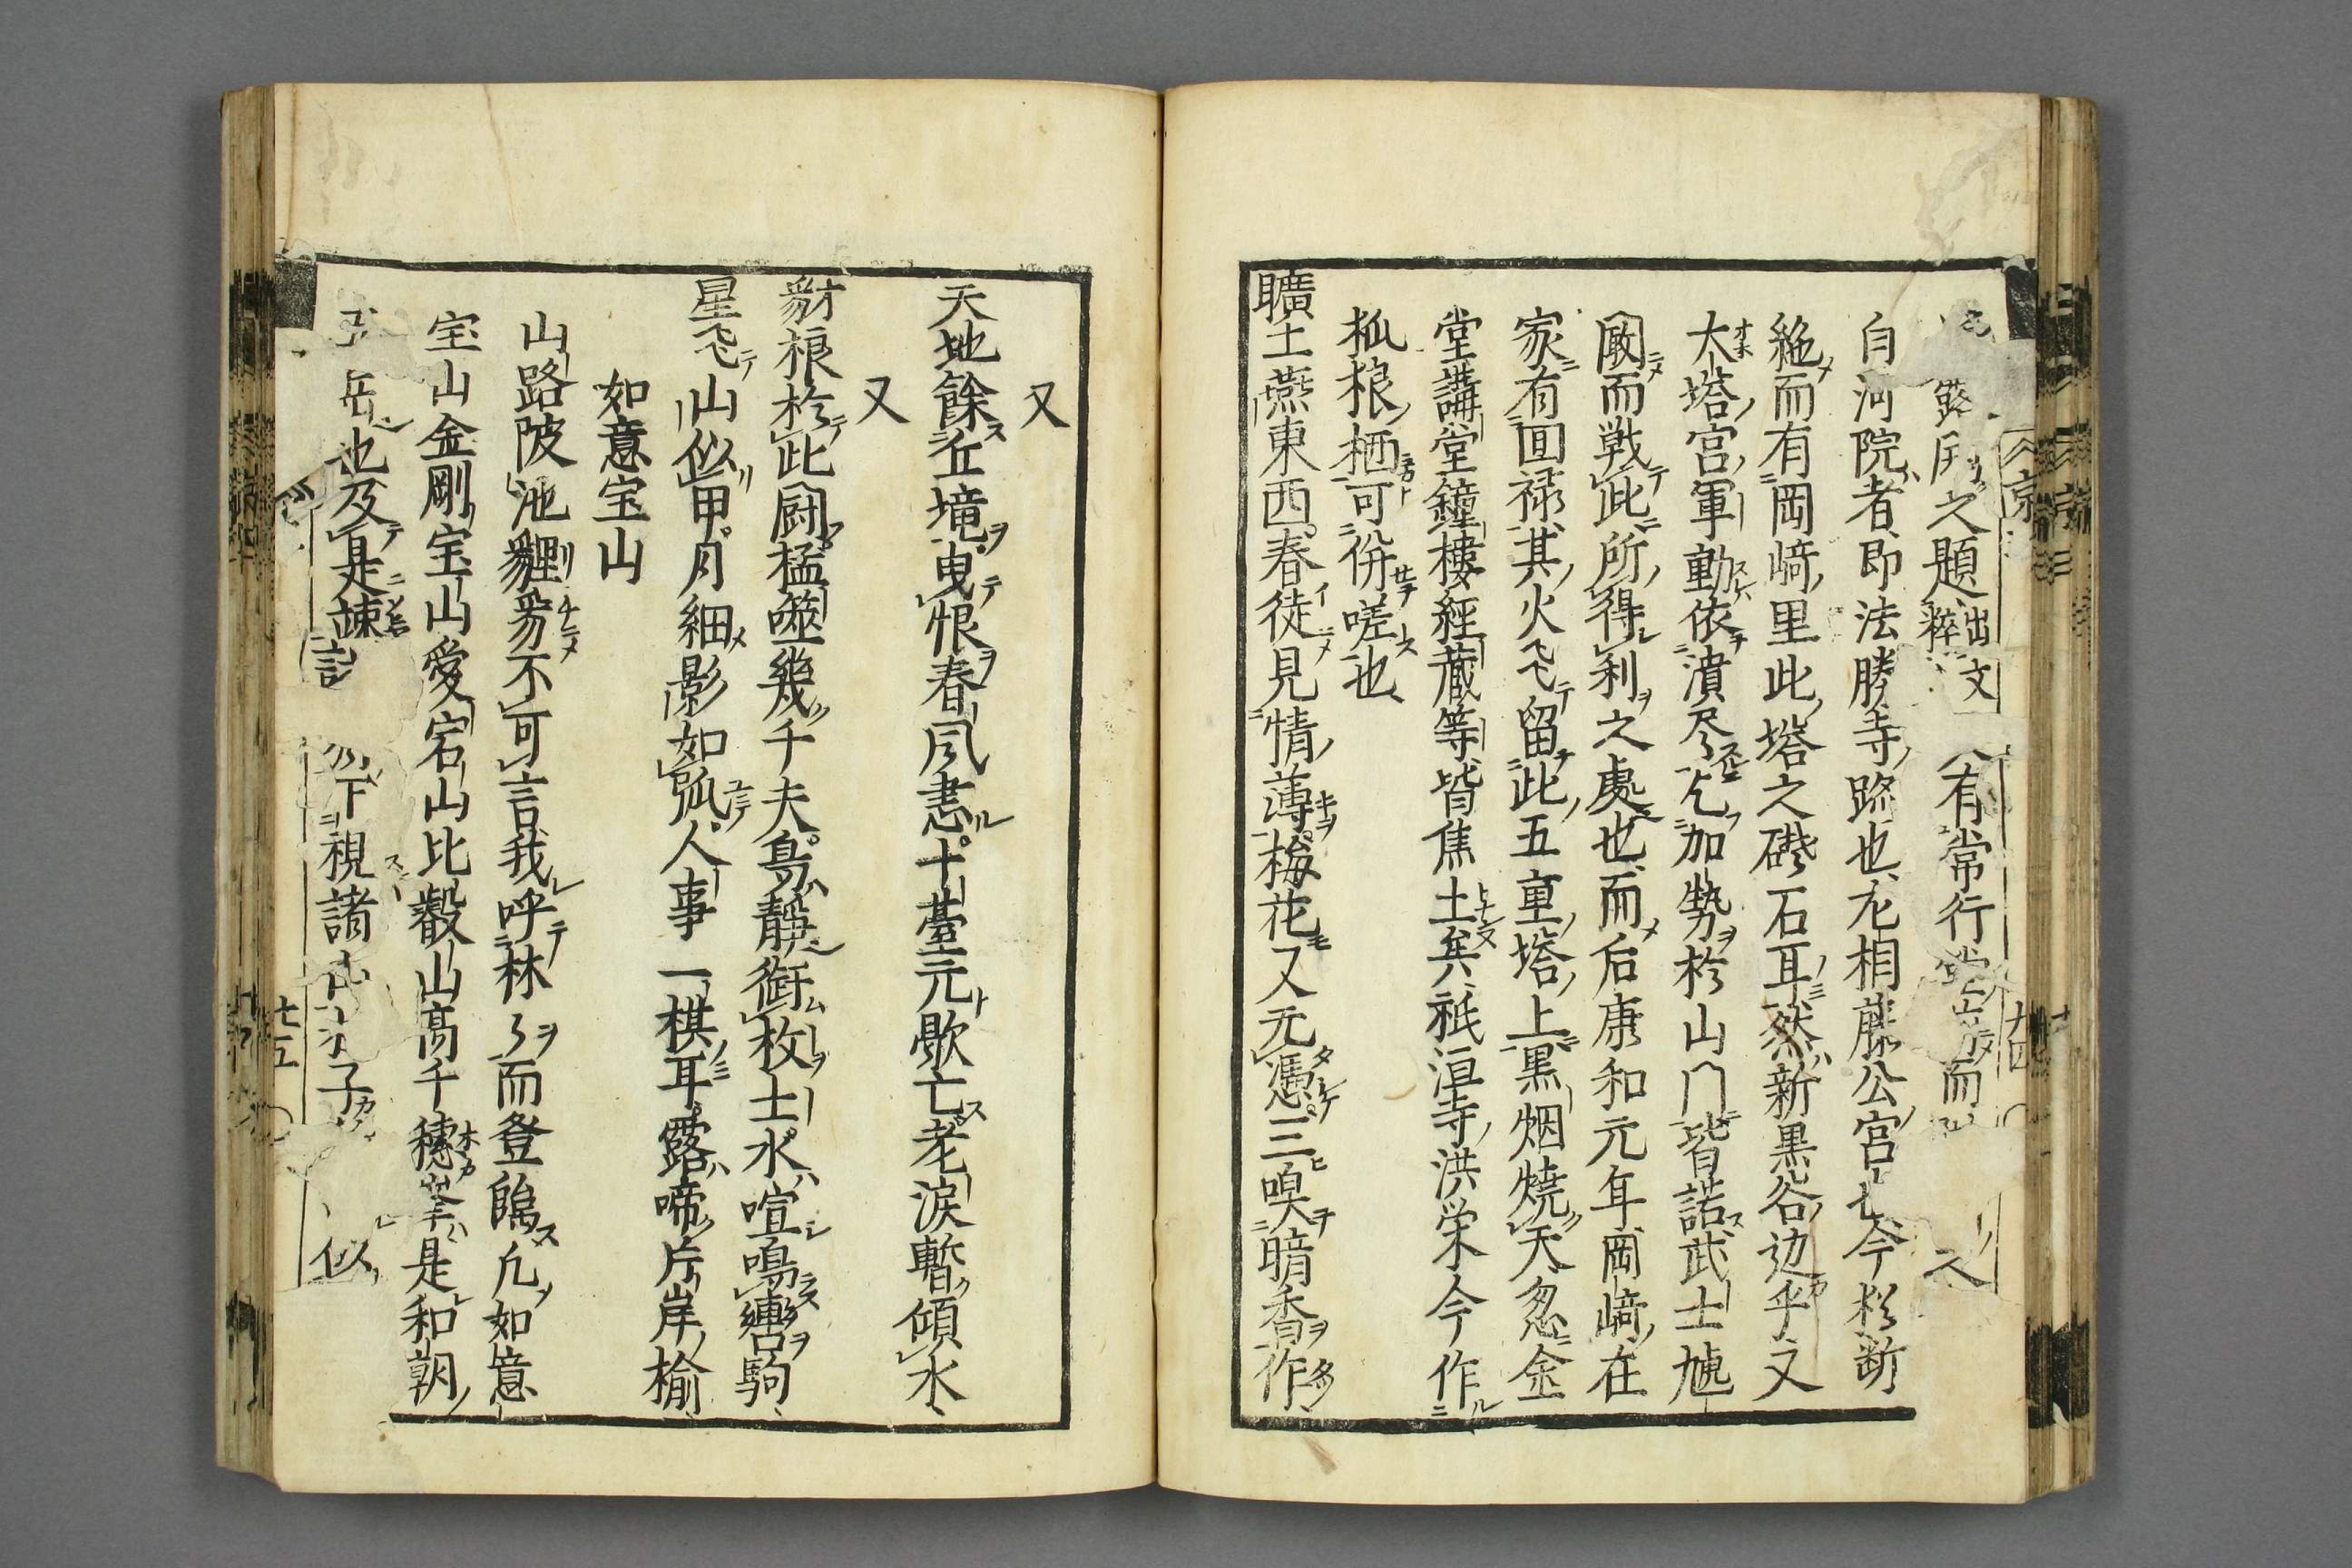 之題 出文粹 有常行堂 而
白河院者即法勝寺跡也左相藤公宮也今於断
絶而有岡﨑里此塔之礎石耳然新黒谷辺乎又
大塔宮軍動依潰尽乞加勢於山門皆諾武士馳
厳而戦此所得利之處也而后康和元年岡﨑在
家有回禄其火飛留此五重塔上黒烟焼天忽金
堂講堂鐘樓經蔵等皆焦土矣祇洹寺洪栄今作
狐狼栖可併嗟也
曠土燕東西春徒見情薄梅花又元憑三嗅暗香作
又
天地餘丘境曳恨春風恚十䑓元歟亡老涙暫傾水
又
豺狼於此闘猛噬幾千夫鳥静銜枚士水喧鳴轡駒
星飛山似甲月細影如弧人事一棋耳露啼片岸榆
如意宝山
山路陂池貍豸不可言我呼林々而登臨凢如意
宝山金剛宝山愛宕山比叡山高千穗峯是和朝
岳也及是諫 下視諸 子 似